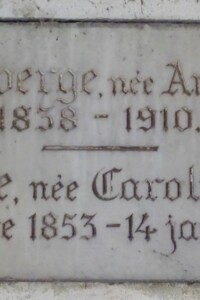 berge, née A
1838 - 1910.
e, née Carol
e 1853-14 ja